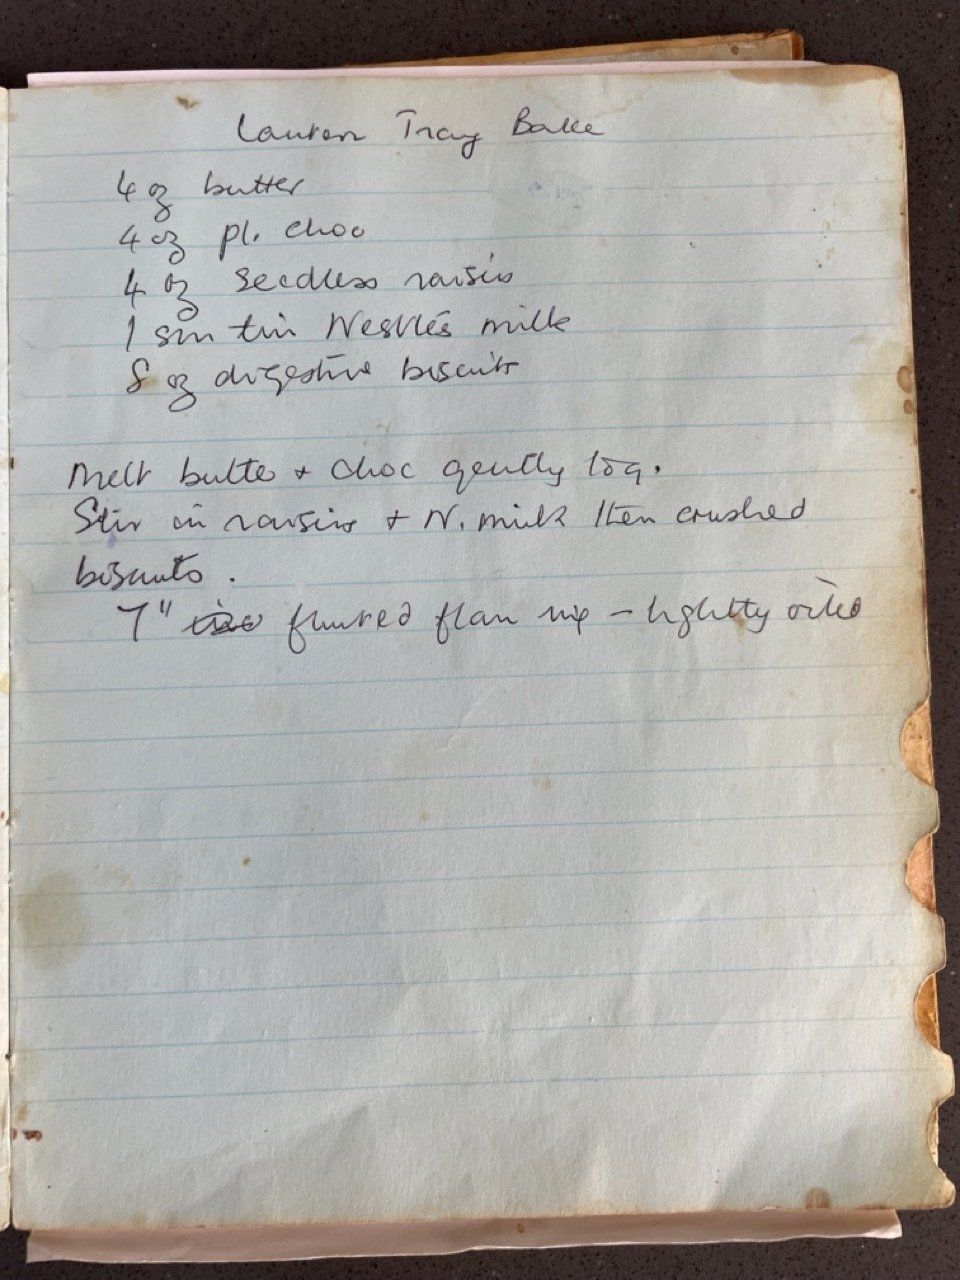 Lauren Tray Bake
4 oz butter
4 oz pl. choc
4 oz seedless raisins
1 sm tin Nestlés milk
8 oz digestive biscuits
Melt butter + choc gently tog.
Stir in raisins + N. milk then crushed
biscuits.
7" fluted flan ring - lightly oiled